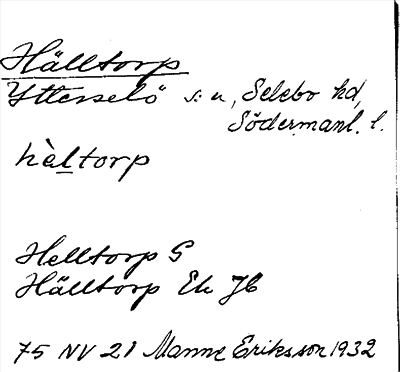 Hälltorp
Ytterselö sn, Selebo hd,
Södermanl. l.
hὲltorp
Helltorp G
Hälltorp Ek JB
75 NV 21 Manne Eriksson 1932